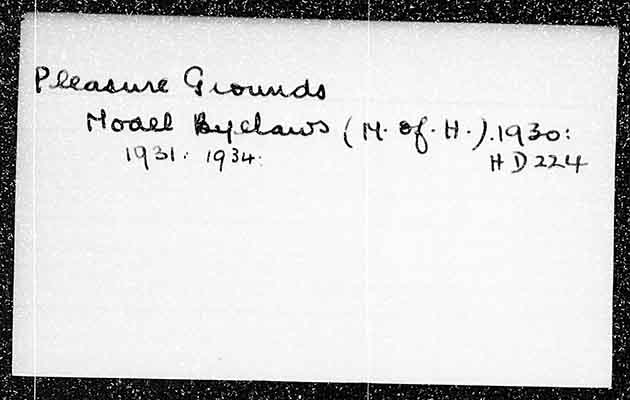 Pleasure Grounds
Model Byelaws (M. of. H.). 1930:
1931. 1934: HD224